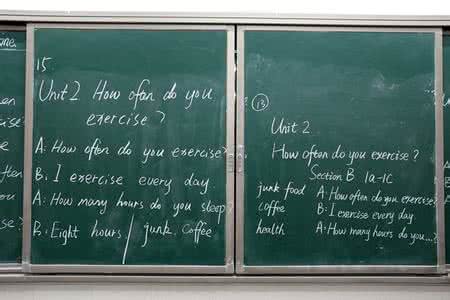 15
Unit 2 How often do you
exercise?
A: How often do you exercise?
B: I exercise every day
A: How many hours do you sleep?
B: Eight hours / junk. coffee
13
Unit 2
How often do you exercise?
Section B 1a-1c
junk food A: How often do you exercise?
coffee B: I exercise every day.
health A: How many hours do you...?